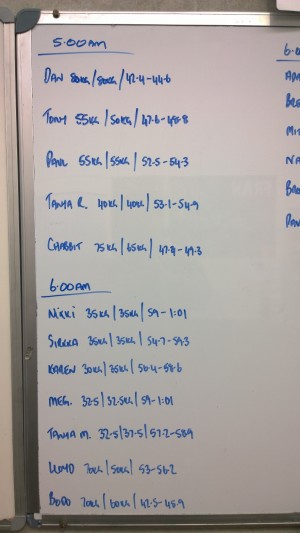 5:00AM
DAN 80KG/80KG/42.4-44.6
TONY 55KG/50KG/47.6-49.8
PAUL 55KG/55KG/52.5-54.3
TANYA R. 40KG/40KG/53.1-54.9
CHABBIT 75KG/65KG/47.4-49.3
6:00AM
NIKKI 35KG/35KG/59-1:01
SIRKKA 35KG/35KG/54.7-59.3
KAREN 30KG/35KG/56.4-58.6
MEG. 32.5/32.5KG/59-1:01
TANYA M. 32.5/37.5/57.2-589
LLOYD 70KG/50KG/53-56.2
BODO 70KG/60KG/42.5-45.9
6:0
ADA
BRE
MIT
NA
BRO
DAN